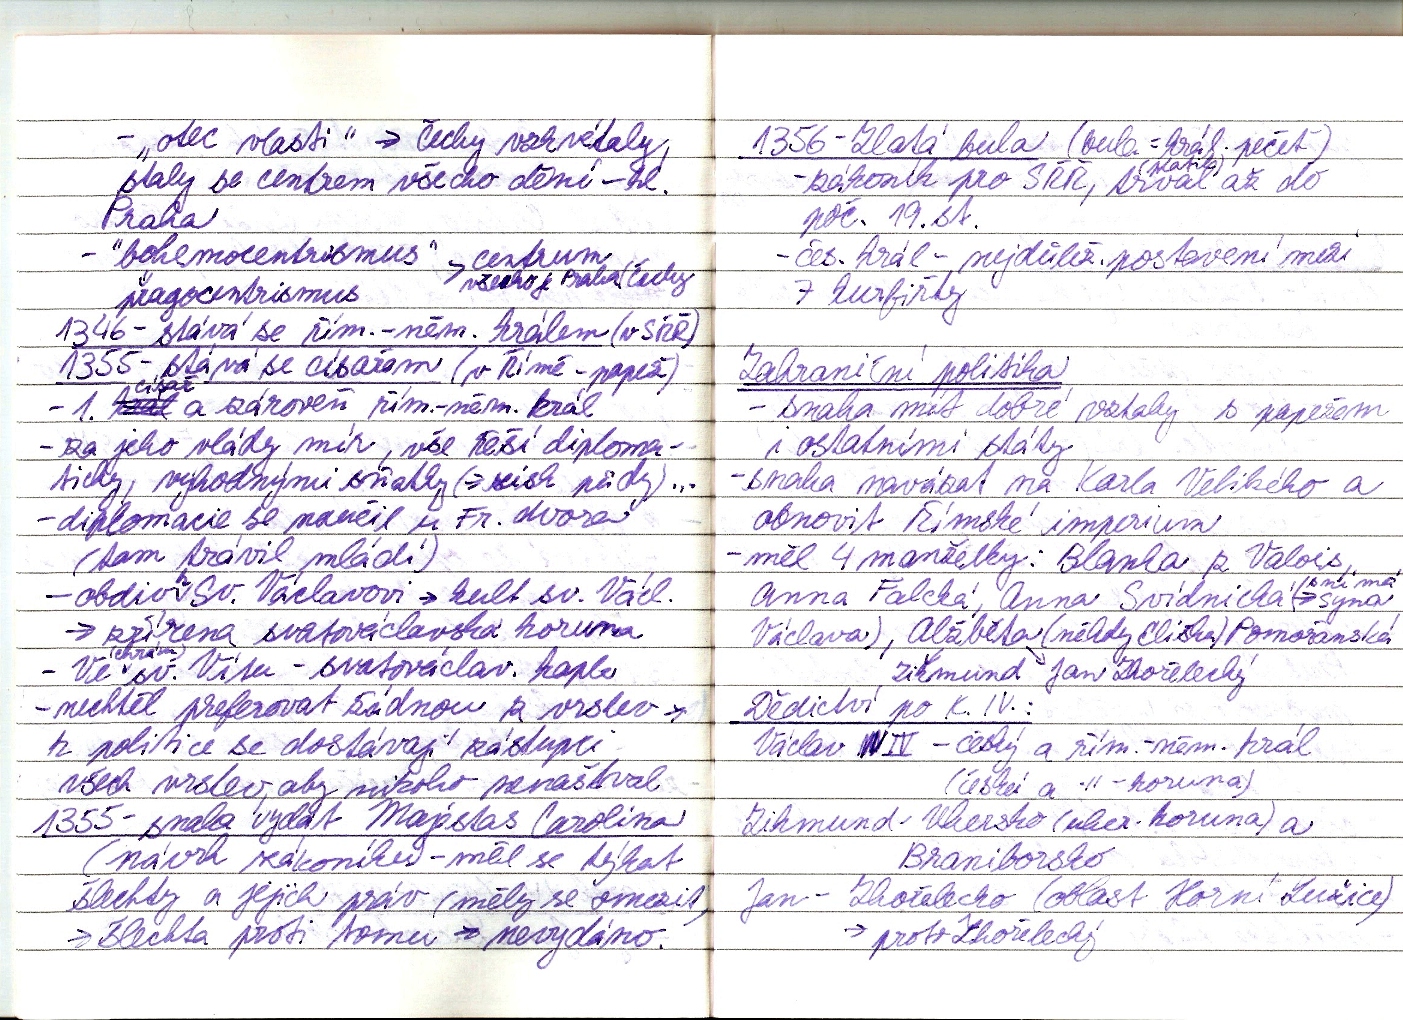 - „otec vlasti" → Čechy vzkvétaly,
staly se centrem všeho dění - hl.
Praha
- "bohemocentrismus" → centrum
všeho je Praha (Čechy
pragocentrismus
1346 - stává se řím.-něm. králem (v SŘŘ)
1355 - stává se císařem (v Římě - papež)
- 1. císař a zároveň řím.-něm. král
- za jeho vlády mír, vše řeší diploma-
ticky, výhodnými sňatky (→ zisk půdy)...
- diplomacie se naučil u Fr. dvora
(tam trávil mládí)
- obdiv k Sv. Václavovi → kult sv. Václ.
→ zřízena svatováclavská koruna
- Ve (chrám) sv. Víta - svatováclav. kaple
- nechtěl preferovat žádnou z vrstev →
k politice se dostávají zástupci
všech vrstev, aby nikoho nenaštval
1355 - snaha vydat Majestas Carolina
(návrh zákoníku - měl se týkat
šlechty a jejich práv (měly se omezit)
→ šlechta proti tomu → nevydáno.
1356 - Zlatá bula (bula = král. pečeť)
- zákoník pro SŘŘ, trval (platila) až do
poč. 19. st.
- čes. král - nejdůlež. postavení mezi
7 kurfiřty
Zahraniční politika
- snaha mít dobré vztahy s papežem
i ostatními státy
- snaha navázat na Karla Velikého a
obnovit Římské imperium
- měl 4 manželky: Blanka z Valois,
Anna Falcká, Anna Svídnická (→ s ní má syna
Václava), Alžběta (někdy Eliška) Pomořanská
Zikmund Jan Zhořelecký
Dědictví po K. IV.:
Václav IV - český a řím.-něm. král
(česká a -"- koruna)
Zikmund - Uhersko (uher. koruna) a
Braniborsko
Jan - Zhořelecko (oblast Horní Lužice)
→ proto Zhořelecký